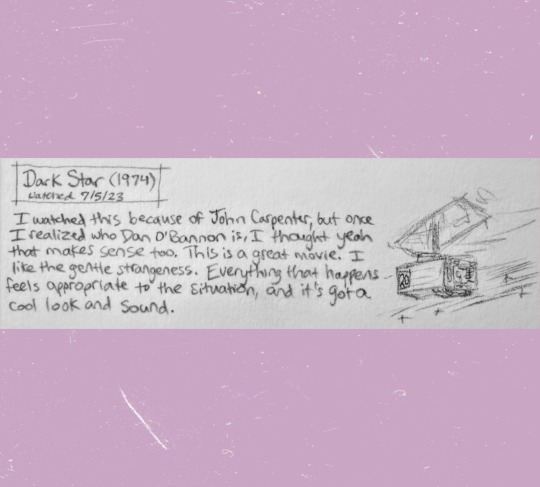 Dark Star (1974)
watched 7/5/23
I watched this because of John Carpenter, but once
I realized who Dan O'Bannon is, I thought yeah
that makes sense too. This is a great movie. I
like the gentle strangeness. Everything that happens
feels appropriate to the situation, and it's got a
cool look and sound.